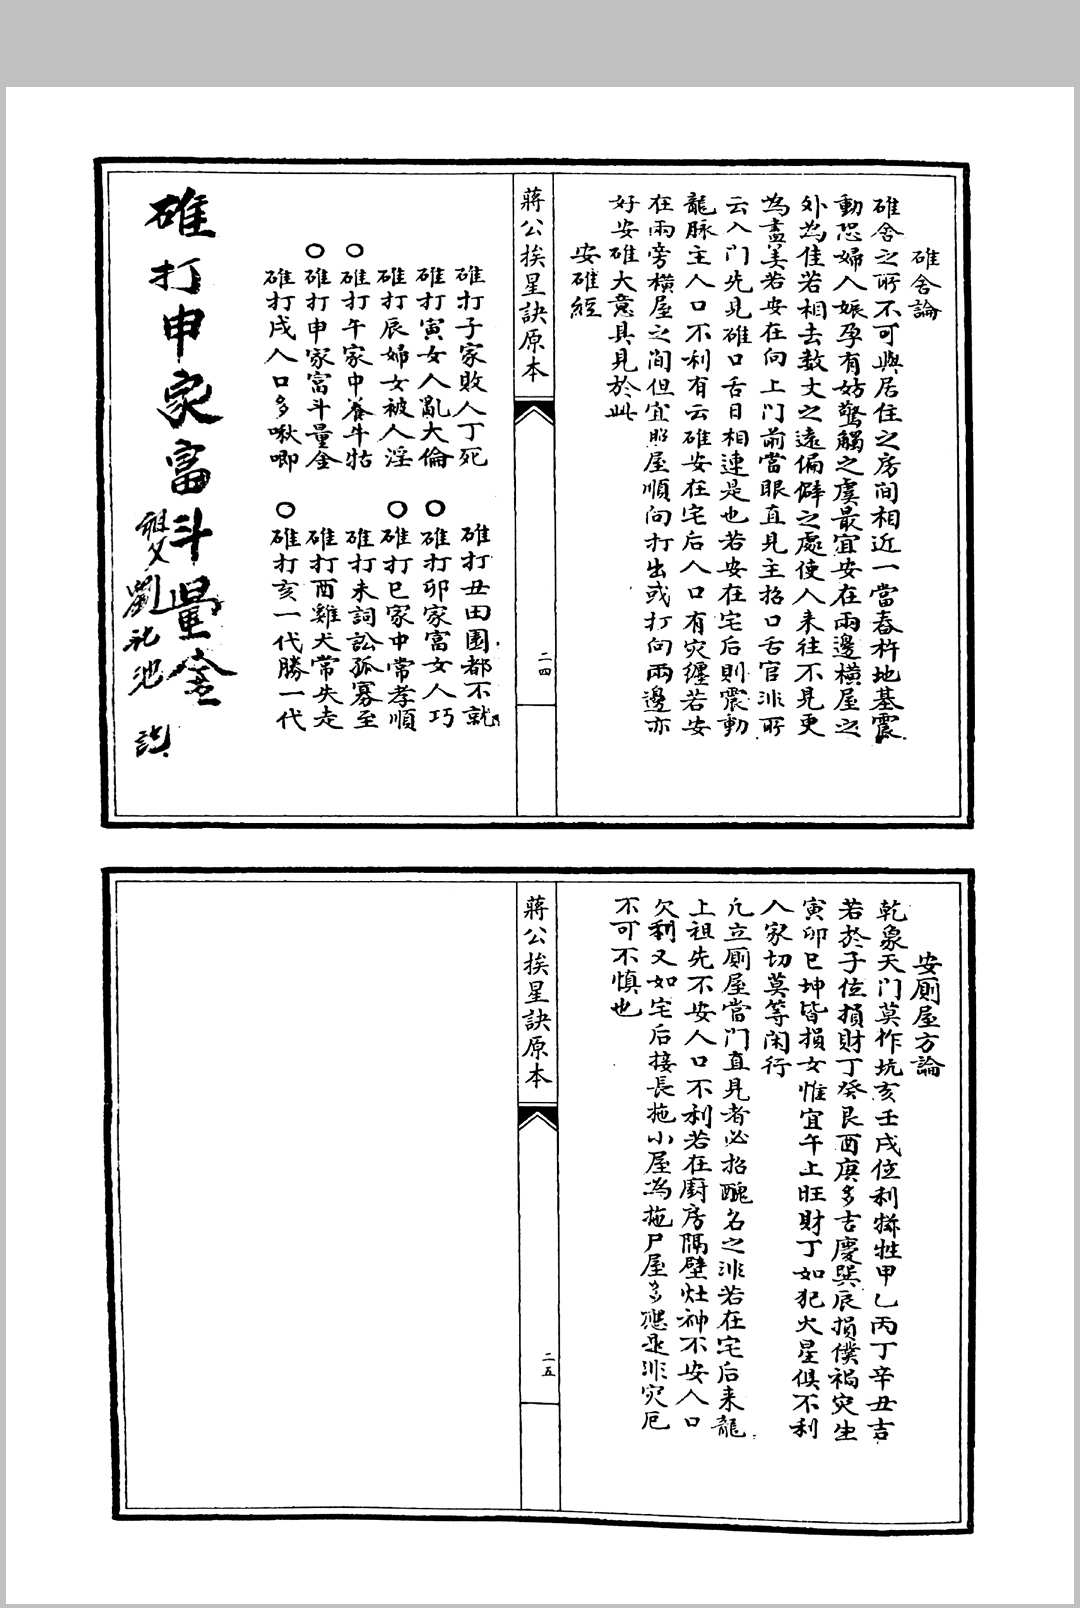 碓舍論
碓舍之所不可與居住之房间相近一當舂杵地基震
動恐婦人娠孕有妨驚觸之虞最宜安在兩邊橫屋之
外為佳若相去数丈之遠偏僻之處使人来往不見更
為盡美若安在向上门前當眼直見主招口舌官非所
云入门先見碓口舌日相連是也若安在宅后則震動
龍脉主人口不利有云碓安在宅后人口有灾纏若安
在兩旁橫屋之间但宜照屋順向打出或打向兩邊亦
好安碓大意具見於此
安碓經
蔣公挨星訣原本
二四
碓打子家敗人丁死
碓打丑田園都不就
碓打寅女人亂大倫
○碓打卯家富女人巧
碓打辰婦女被人淫
○碓打巳家中常孝順
○碓打午家中养牛牯
碓打未詞訟孤寡至
○碓打申家富斗量金
碓打酉雞犬常失走
碓打戌人口多啾唧
○碓打亥一代勝一代
碓打申家富斗量金
劉
安厠屋方論
乾象天门莫作坑亥壬戌位利牲甲乙丙丁辛丑吉
若於子位損財丁癸艮酉庚多吉慶巽辰損僕禍灾生
寅卯巳坤皆損女惟宜午上旺財丁如犯火星俱不利
人家切莫等闲行
凡立厠屋當门直見者必招醜名之非若在宅后来龍
上祖先不安人口不利若在廚房隔壁灶神不安人口
欠利又如宅后接長拖小屋為拖尸屋多應是非灾厄
不可不慎也
蔣公挨星訣原本
二五